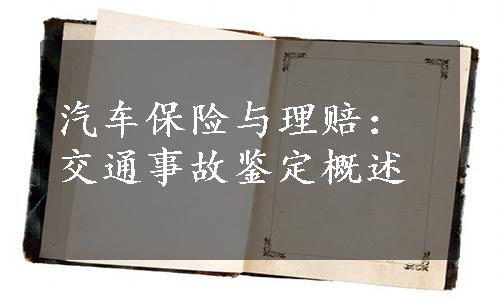 汽车保险与理赔：
交通事故鉴定概述